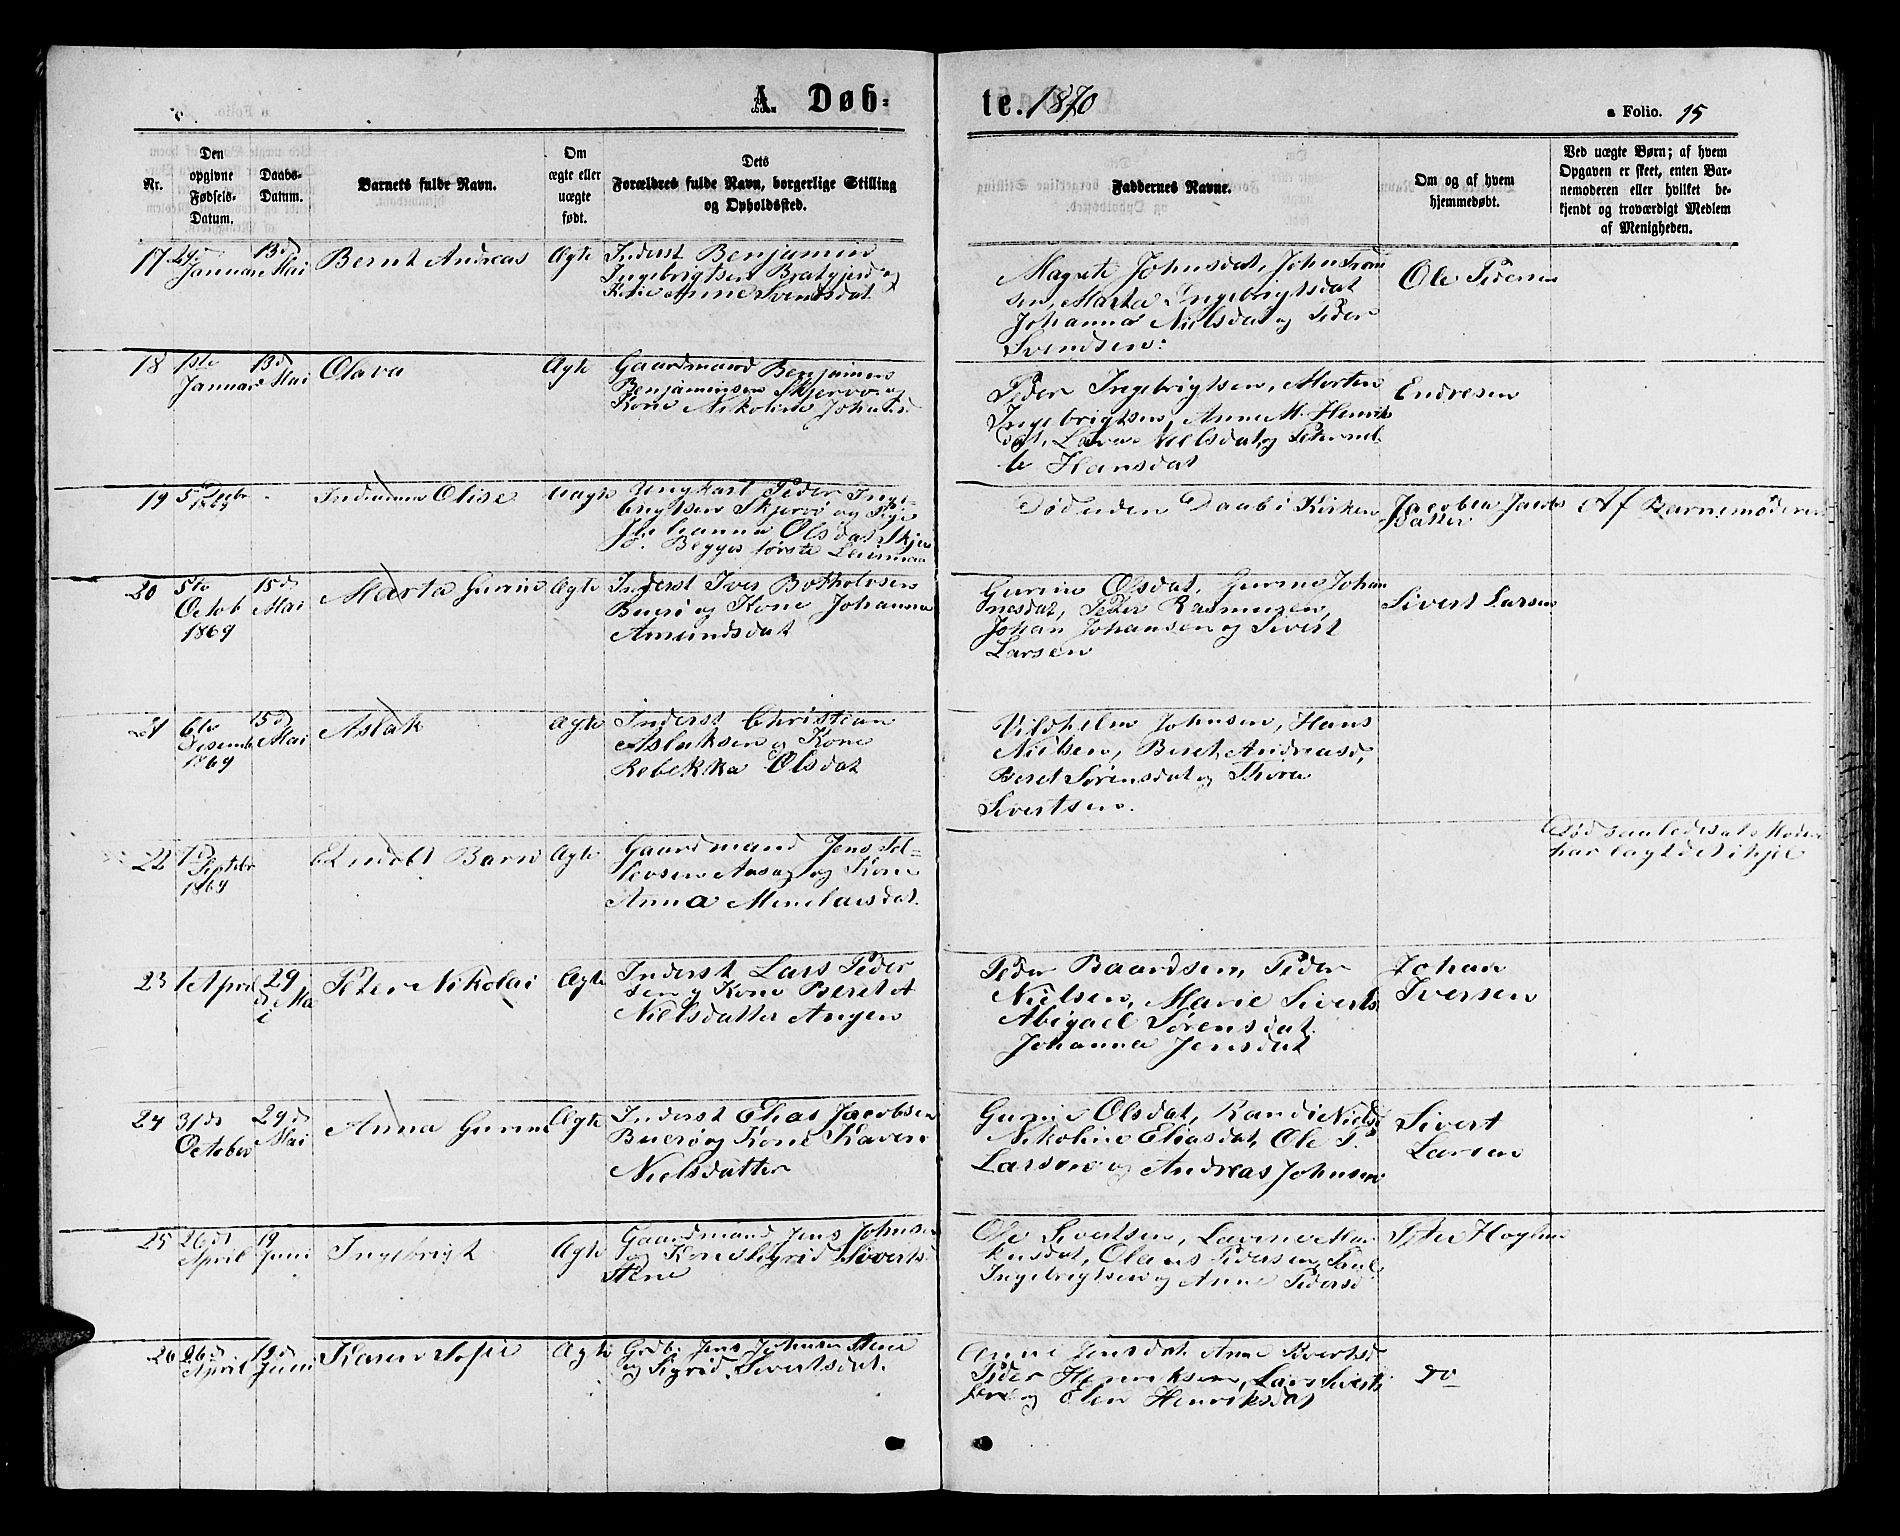 A. Døb-
te. 1870
a Folio. 15
Nr.
Den
opgivne
Fødsels-
Datum.
Daabs-
Datum.
Barnets fulde Navn.
Om
ægte eller
uægte
født.
Dets
Forældres fulde Navn, borgerlige Stilling
og Opholdssted.
Faddernes Navne.
Om og af hvem
hjemmedøbt.
Ved uægte Børn; af hvem
Opgaven er skeet, enten Bar-
nemoderen eller hvilket be-
kjendt og troværdigt Medlem
af Menigheden.
17
Januar
13d
Mai
Bernt Andreas
Ægte
Inderst Benjamin
Ingebrigtsen
Kone Anne Svendsdat
Magrete Johnsdat, John
sen, Marta Ingebrigtsdat
Johanna Nielsdat og Peder
Svendsen.
Ole
18
1ste
Januar
13d
Mai
Olava
Ægte
Gaardmand Benjamin
Benjaminsen Skjervø og
Kone Nikoline
Peder Ingebrigtsen, Morten
Ingebrigtsen, Anne M. Henrik
dat, Nielsdat og
Hansdat
Endresen
19
5
1869
Olise
Uægte
Ungkarl Peder Inge-
brigtsen Skjervø og Pige
Johanna Olsdat
Begges første Leiermaal
Død uden Daab i Kirken
Jacobea
datter
Af Barnemoderen
20
5te
Octob
1869
15d
Mai
Marta Gurine
Ægte
Inderst Iver
og Kone Johanna
Amundsdat
Gurine Olsdat, Gurine Johan
nesdat, Peder Rasmusen,
Johan Johansen og Sivert
Larsen
Sivert Larsen
21
6te
Desemb
1869
15d
Mai
Aslak
Ægte
Inderst Christian
Aslaksen og Kone
Rebekka Olsdat
Vildhelm Johnsen, Hans
Nielsen, Beret Andreasd,
Beret Sørensdat og Thora
Sivertsen.
22
7d
Septbr
1869
Et udøbt Barn
Ægte
Gaardmand Jens
og Kone
Anna
Død saaledes at Moder
har lagt det ihjel
23
1 April
29
d Ma
i
Peter Nikolai
Ægte
Inderst Lars Peder
sen og Kone Beret A
Nielsdatter Angen
Peder Baardsen, Peder
Nielsen, Marie Siverts
Abigael Sørensdat
Johanna Jensdat
Johan
Iversen
24
31d
October
29d
Mai
Anna Gurine
Ægte
Inderst Elias Jacobsen
og Kone Karen
Nielsdatter
Gurine Olsdat, Randi Niels
Nikoline Eliasdat, Ole P.
Larsen og Andreas Johnsen
Sivert
Larsen
25
26d
April
19
Juni
Ingebrigt
Ægte
Gaardmand Jens Johnsen
og Kone Sigrid Siverts
Stene
Ole Sivertsen,
Olaus Pedersen,
Ingebrigtsen og Anne Pedersd
26
26d
April
19d
Juni
Karen Sofie
Ægte
Grdb. Jens Johnsen Stene
og Sigrid Sivertsdat.
Anne Jensdat, Anne
Peder Henriksen, Lars Siverts
og Elen Henriksdat
do